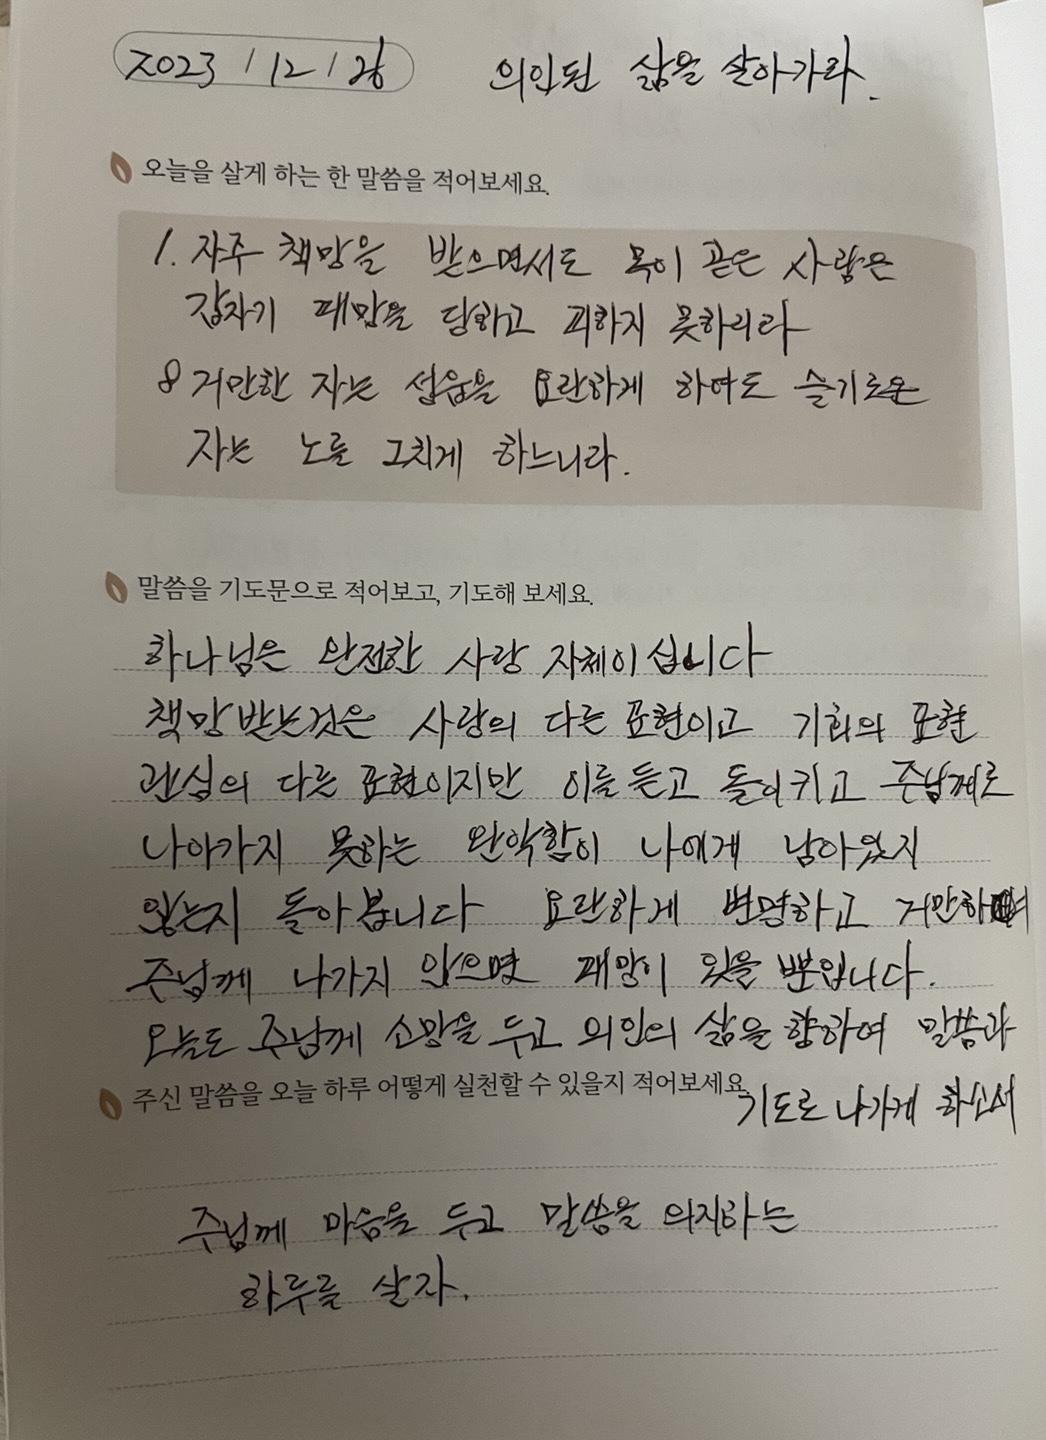 2023 / 12 / 26 의인된 삶을 살아가라.
오늘을 살게 하는 한 말씀을 적어보세요.
1. 자주 책망을 받으면서도 목이 곧은 사람은
갑자기 패망을 당하고 피하지 못하리라
8 거만한 자는 성읍을 요란하게 하여도 슬기로운
자는 노를 그치게 하느니라.
말씀을 기도문으로 적어보고, 기도해 보세요.
하나님은 완전한 사랑 자체이십니다
책망받는것은 사랑의 다른 표현이고 기회의 표현
관심의 다른 표현이지만 이를 듣고 돌이키고 주님께로
나아가지 못하는 완악함이 나에게 남아있지
않는지 돌아봅니다 요란하게 변명하고 거만하여
주님께 나가지 않으면 패망이 있을 뿐입니다.
오늘도 주님께 소망을 두고 의인의 삶을 향하여 말씀과
기도로 나가게 하소서
주신 말씀을 오늘 하루 어떻게 실천할 수 있을지 적어보세요.
주님께 마음을 두고 말씀을 의지하는
하루를 살자.